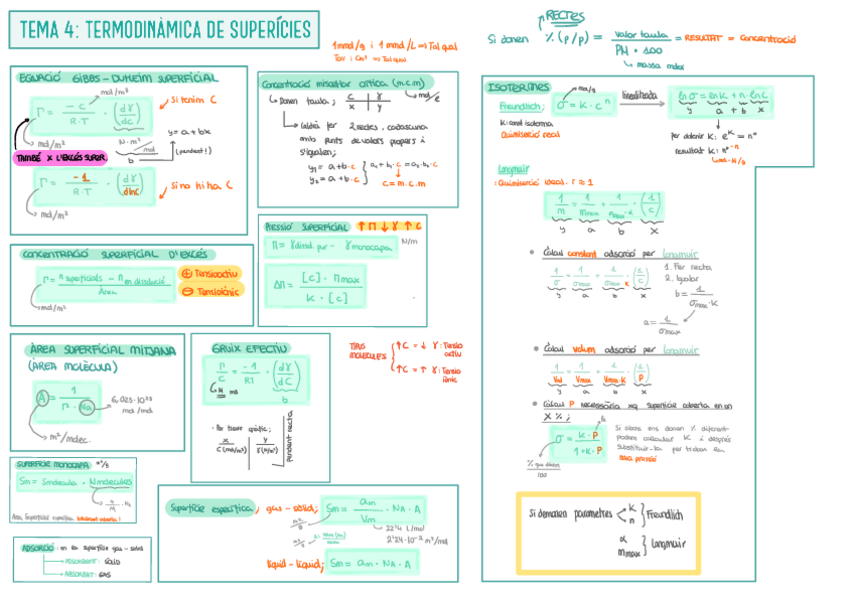 TEMA 4: TERMODINÀMICA DE SUPERÍCIES
1mmol/g i 1 mmol/L => Tal qual
Torr i cm³ => Tal qual
RECTES
Si donen % (p/p) = valor taula / PM · 100 = RESULTAT = Concentració
massa molar
EQUACIÓ GIBBS-DUHEIM SUPERFICIAL
Γ = -C / R·T · (dγ / dC)
mol/m³
Si tenim C
mol/m²
N·m⁻¹ / mol
b
y = a + bx
(pendent!)
TAMBÉ X L'EXCÉS SUPER.
Γ = -1 / R·T · (dγ / dlnC)
Si no hi ha C
mol/m²
Concentració micel·lar crítica (m.c.m)
Donen taula; C γ
x y
mol/e
Caldrà fer 2 rectes, cadascuna
amb punts de valors propers i
s'igualen;
y₁ = a + b·c
y₂ = a + b·c
a₁ + b₁·c = a₂ + b₂·c
c = m.c.m
PRESSIÓ SUPERFICIAL ↑Π ↓γ ↑C
Π = γ dissol. pur - γ monocapa
N/m
ΔΠ = [C] · Π max / K · [C]
CONCENTRACIÓ SUPERFICIAL D'EXCÉS
Γ = n superficials - n en dissolució / Àrea
⊕ Tensioactiu
⊖ Tensioiònic
mol/m²
ÀREA SUPERFICIAL MITJANA
(ÀREA MOLÈCULA)
A = 1 / Γ · NA
6,023·10²³
mol/mol
m²/molec.
GRUIX EFECTIU
Γ / C = -1 / RT · (dγ / dC)
b
Per trobar gràfic;
x y
C (mol/m³) γ (N/m²)
pendent recta
TIPUS
MOLÈCULES
↑C = ↓γ : Tensio
actiu
↑C = ↑γ : Tensio
iònic
SUPERFÍCIE MONOCAPA m²/g
Sm = Smolecula · Nmolecules
Àrea superficial específica totalment coberta!
ADSORCIÓ: en la superfície gas-sòlid
ADSORBENT: SÒLID
ADSORBAT: GAS
Superfície específica; gas-sòlid; Sm = am / Vm · NA · A
22'4 L/mol
2'24·10⁻² m³/mol
líquid-líquid; Sm = am · NA · A
ISOTERMES
Freundlich; σ = K · Cⁿ
mol/g
linealitzada
lnσ = lnK + n·lnC
y a + b x
K: const isoterma
Quimisorció real
per obtenir K: eᴷ = nº
resultat K: nº⁻ⁿ
Langmuir
: Quimisorció ideal. r ≥ 1
1/m = 1/mmax + 1/nmax·α · (1/C)
y a b x
Càlcul constant adsorció per Langmuir
1/σ = 1/σmax + 1/σmax·K · (1/C)
y a b x
1. Fer recta
2. Igualar
b = 1 / σmax·K
a = 1 / σmax
Càlcul volum adsorció per Langmuir
1/Vad = 1/Vmax + 1/Vmax·K · (1/P)
y a b x
Càlcul P necessària xq superfície coberta en un
X %;
σ = K·P / 1+K·P
% que donen
100
Si abans ens donen % diferent
podem calcular K i després
substituir-la per trobar la
nova pressió
Si demanen paràmetres
K
n
Freundlich
α
mmax
Langmuir